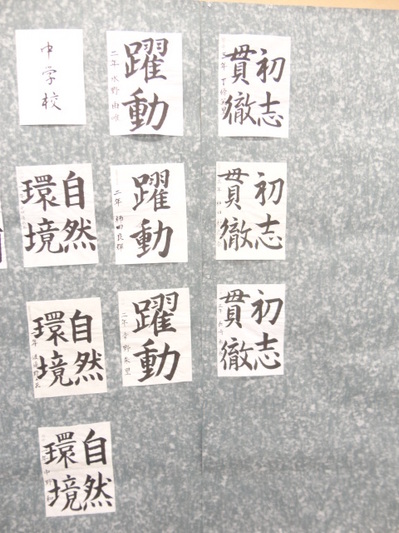 初志
貫徹
初志
貫徹
初志
貫徹
躍動
二年 水野
躍動
二年
躍動
二年
中学校
自然
環境
自然
環境
自然
環境